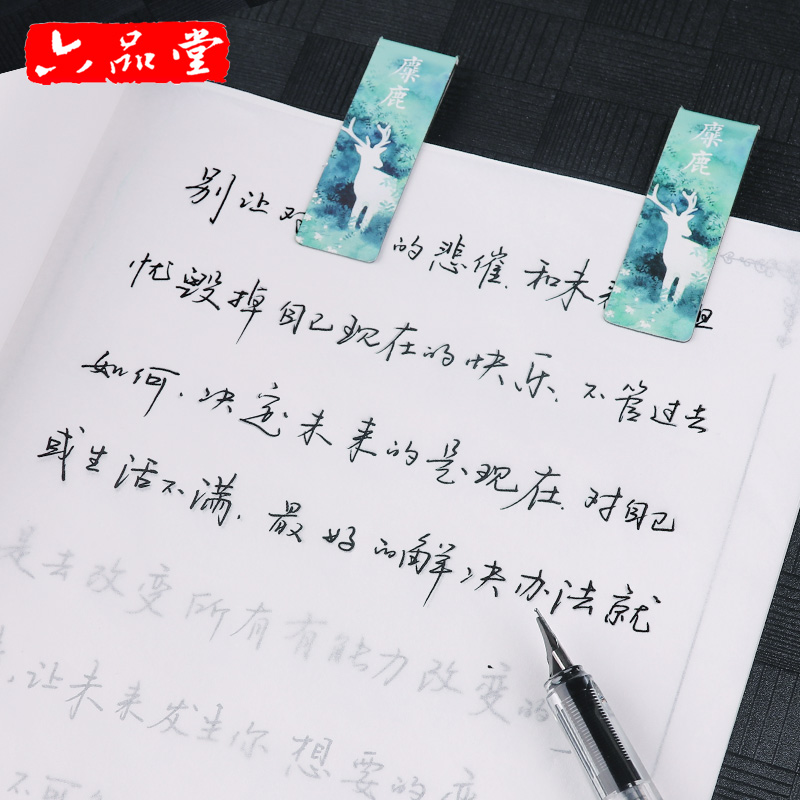 六品堂
麋鹿
麋鹿
别让对的悲催,和未
忧毁掉自己现在的快乐,不管过去
如何,决定未来的是现在,对自己
或生活不满,最好的解决办法就
是去改变所有有能力改变的一
,让未来发生你想要的
不可